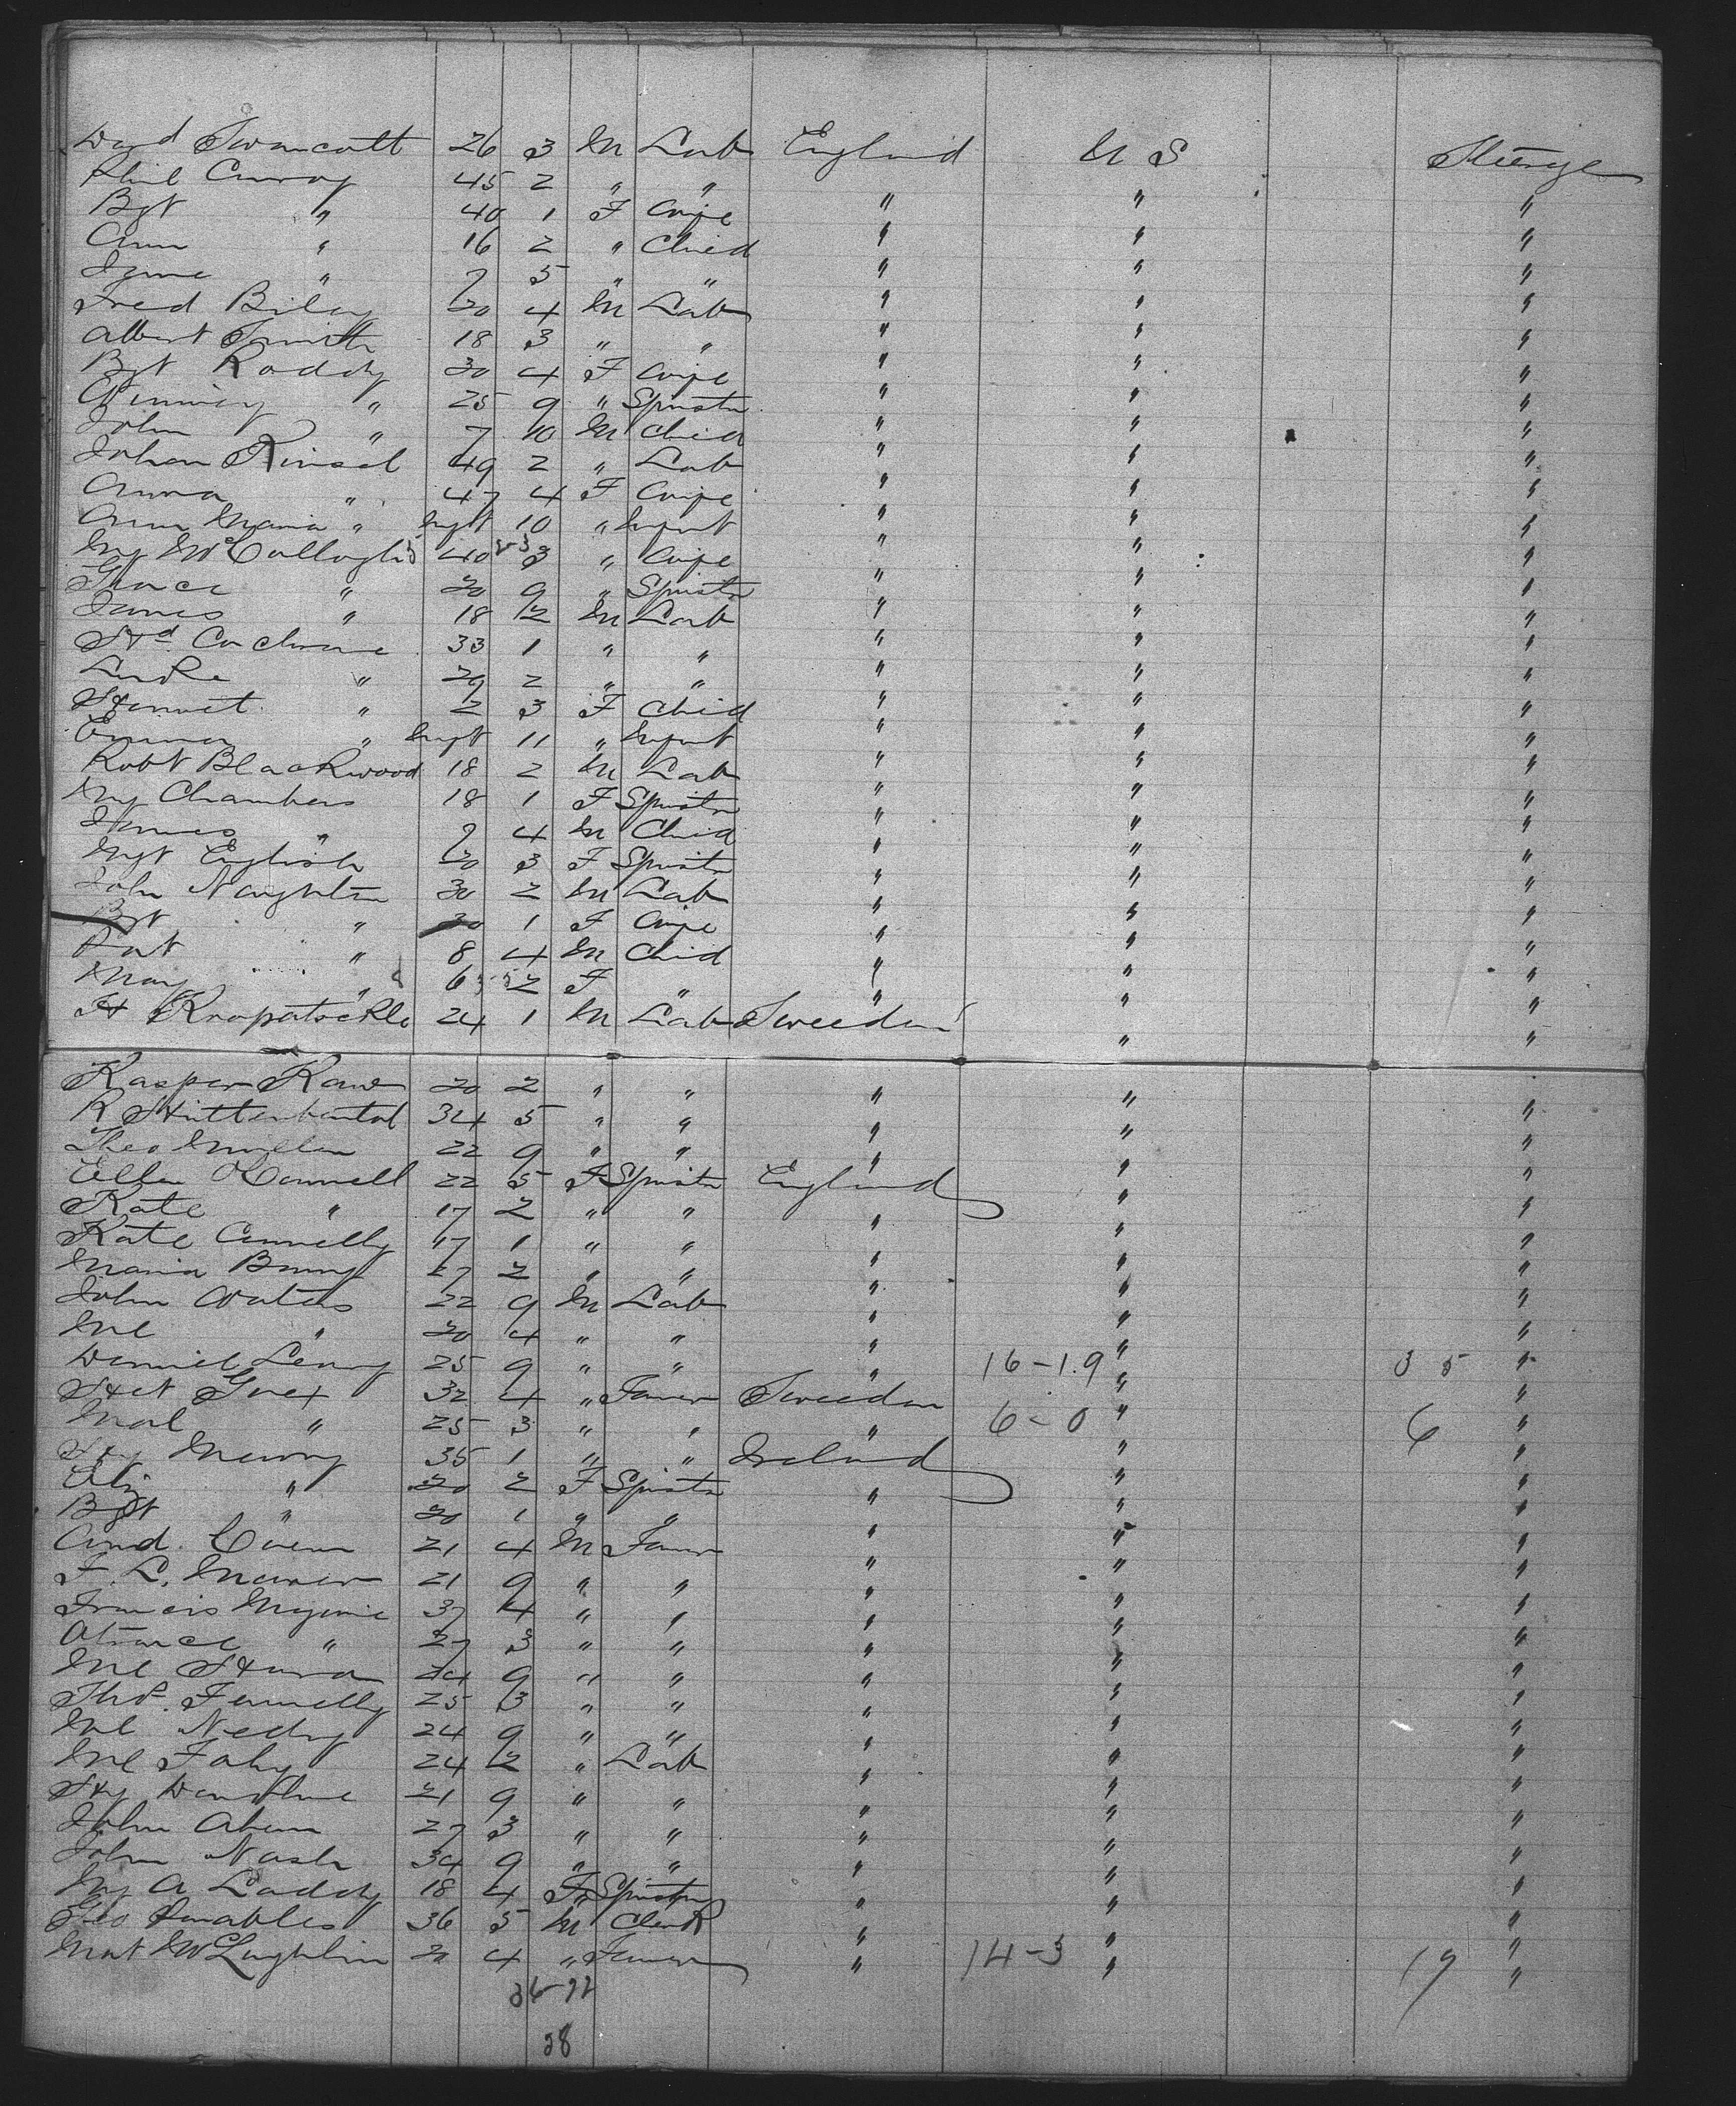 Davd Swancott 26 3 M Lab England U S Steerage
Phil Conroy 45 2 " " " " "
Bgt " 40 1 F Wife " " "
Ann " 16 2 " Child " " "
7 5 " " " " "
Fred Biley 20 4 M Lab " " "
Albert Smith 18 3 " " " " "
Bgt Roddy 30 4 F Wife " " "
Winniey " 25 9 " Spinstr " " "
John " 7 10 M Child " " "
Johan Kinsel 49 2 " Lab " " "
Anna " 47 4 F Wife " " "
Ann Maria " Inft 10 " Infant " " "
My McCullogh 40 3 " Wife " " "
Grace " 20 9 " Spinstr " " "
James " 18 12 M Lab " " "
Hd Cochrane 33 1 " " " " "
Luke " 29 2 " " " " "
Hannet " 2 3 F Child " " "
Emma " Inft 11 " Infant " " "
Robt Blackwood 18 2 M Lab " " "
My Chambers 18 1 F Spinstr " " "
James " 9 4 M Child " " "
Mgt English 20 3 F Spinstr " " "
John Naughton 30 2 M Lab " " "
Bgt " 30 1 F Wife " " "
Pat " 8 4 M Child " " "
May " 6 2 F " " " "
H Kropatsckle 24 1 M Lab Sweeden " "
Kasper Kane 20 2 " " " " "
R Huttenbental 34 5 " " " " "
Theo Mullen 22 9 " " " " "
Ellen OConnell 22 5 F Spinstr England " "
Kate " 17 2 " " " " "
Kate Connelly 17 1 " " " " "
Maria Bruny 27 2 " " " " "
John Waters 22 9 M Lab " " "
Ml " 20 4 " " " " "
Daniel Leary 25 9 " " " 16-19 " 35 "
Gret 32 4 " Farmer Sweeden " "
" 25 3 " " " 6-0 " 6 "
Hy Murray 35 1 " " Ireland " "
Eliz " 20 2 F Spinstr " " "
Bgt " 20 1 " " " " "
And. Coen 21 4 M Farmer " " "
F. L. 21 9 " " " " "
Francis 37 4 " " " " "
" 27 3 " " " " "
Ml Hara 24 9 " " " " "
Thos. Fennelly 25 3 " " " " "
Ml Nedy 24 9 " " " " "
Ml Fahy 24 2 " Lab " " "
Hy Donohue 21 9 " " " " "
John Ahern 27 3 " " " " "
John Nash 34 9 " " " " "
My A Laddy 18 4 F Spinstr " " "
Geo Venables 36 5 M Clerk " " "
Mat McLaughlin 20 4 " Farmer " 14-3 " 17 "
36-22
28